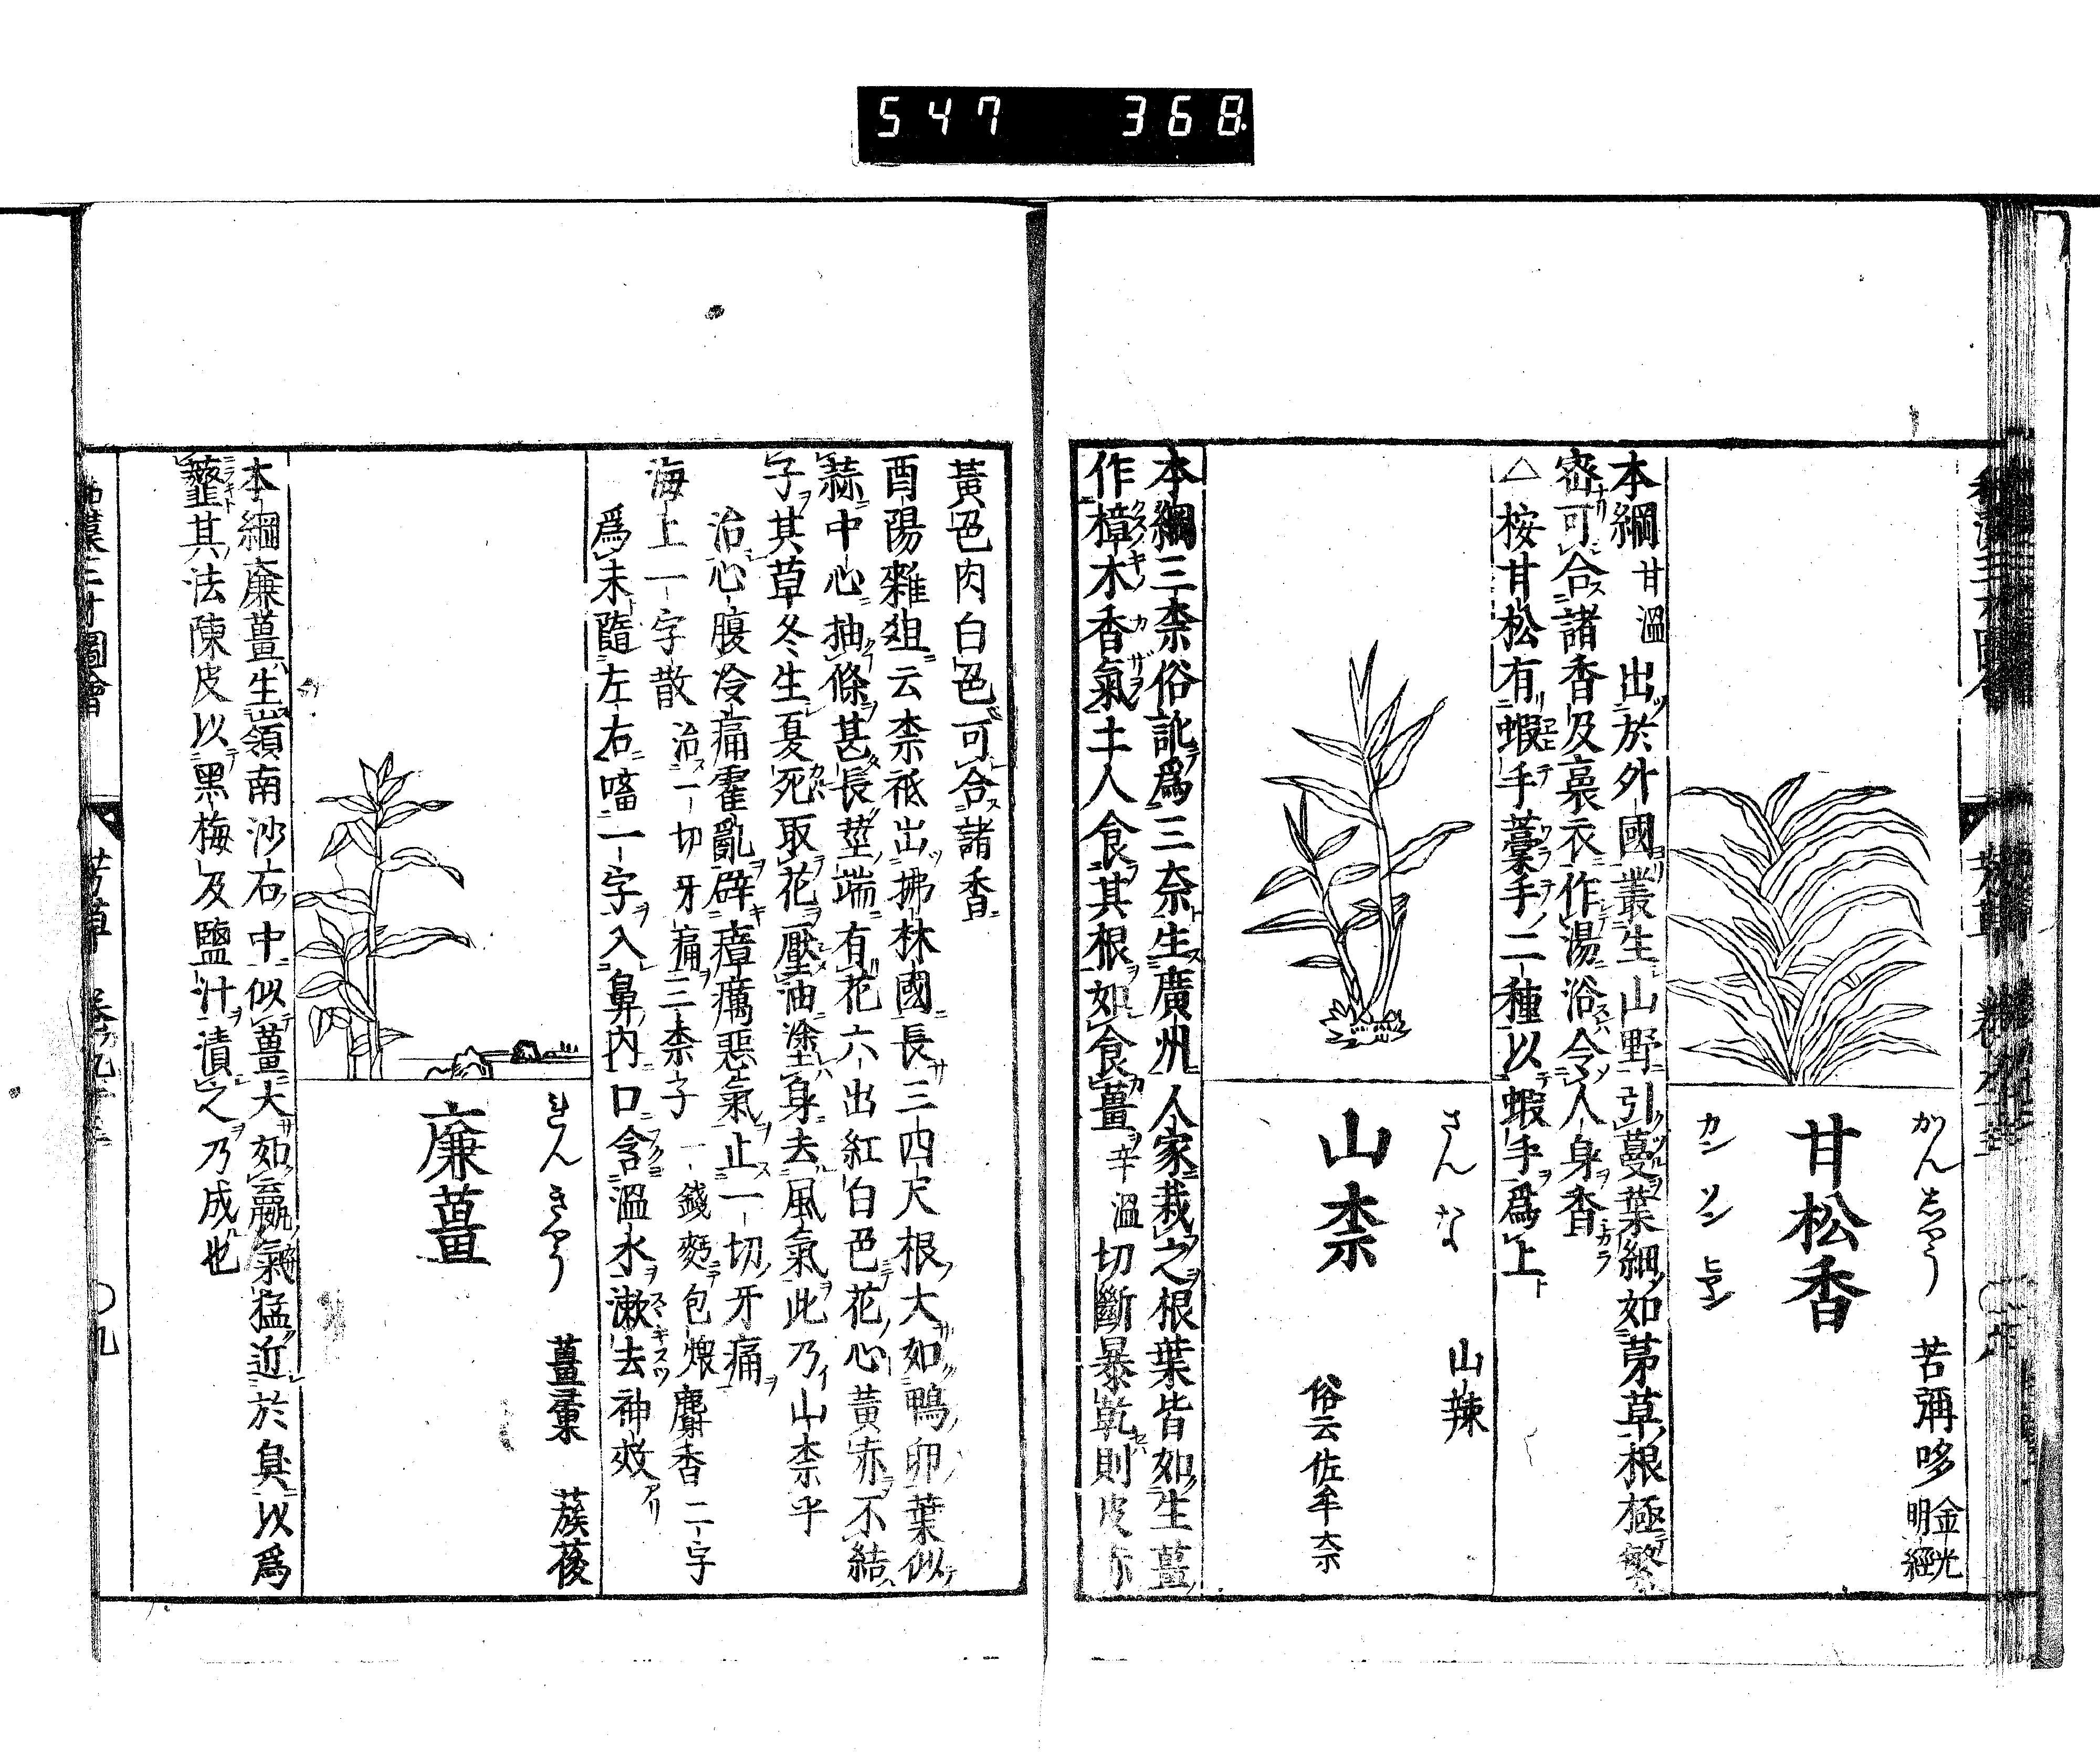 547 368
がんしやう
苦彌哆 金光明經
甘松香
カン ソン ヒヤン
本綱甘溫出於外國叢生山野引蔓葉細如茅草根極繁
密可合諸香及裛衣作湯浴令人身香
△按甘松有蝦手藁手二種以蝦手爲上
さんな
山辣
山柰
俗云佐牟奈
本綱三柰俗訛爲三奈生廣州人家栽之根葉皆如生薑
作樟木香氣土人食其根如食薑辛溫切斷暴乾則皮赤
黃色肉白色可合諸香
酉陽雜俎云柰祗出拂林國長三四尺根大如鴨卵葉似
蒜中心抽條甚長莖端有花六出紅白色花心黃赤不結
子其草冬生夏死取花壓油塗身去風氣此乃山柰乎
治心腹冷痛霍亂辟瘴癘惡氣止一切牙痛
海上一字散 治一切牙痛三柰子一錢麪包煨麝香二字
爲末隨左右㗜一字入鼻內口含溫水漱去神效アリ
れんきやう
薑彙 蔟葰
廉薑
本綱廉薑生嶺南沙石中似薑大如蠃氣猛近於臭以爲
虀其法陳皮以黑梅及鹽汁漬之乃成也